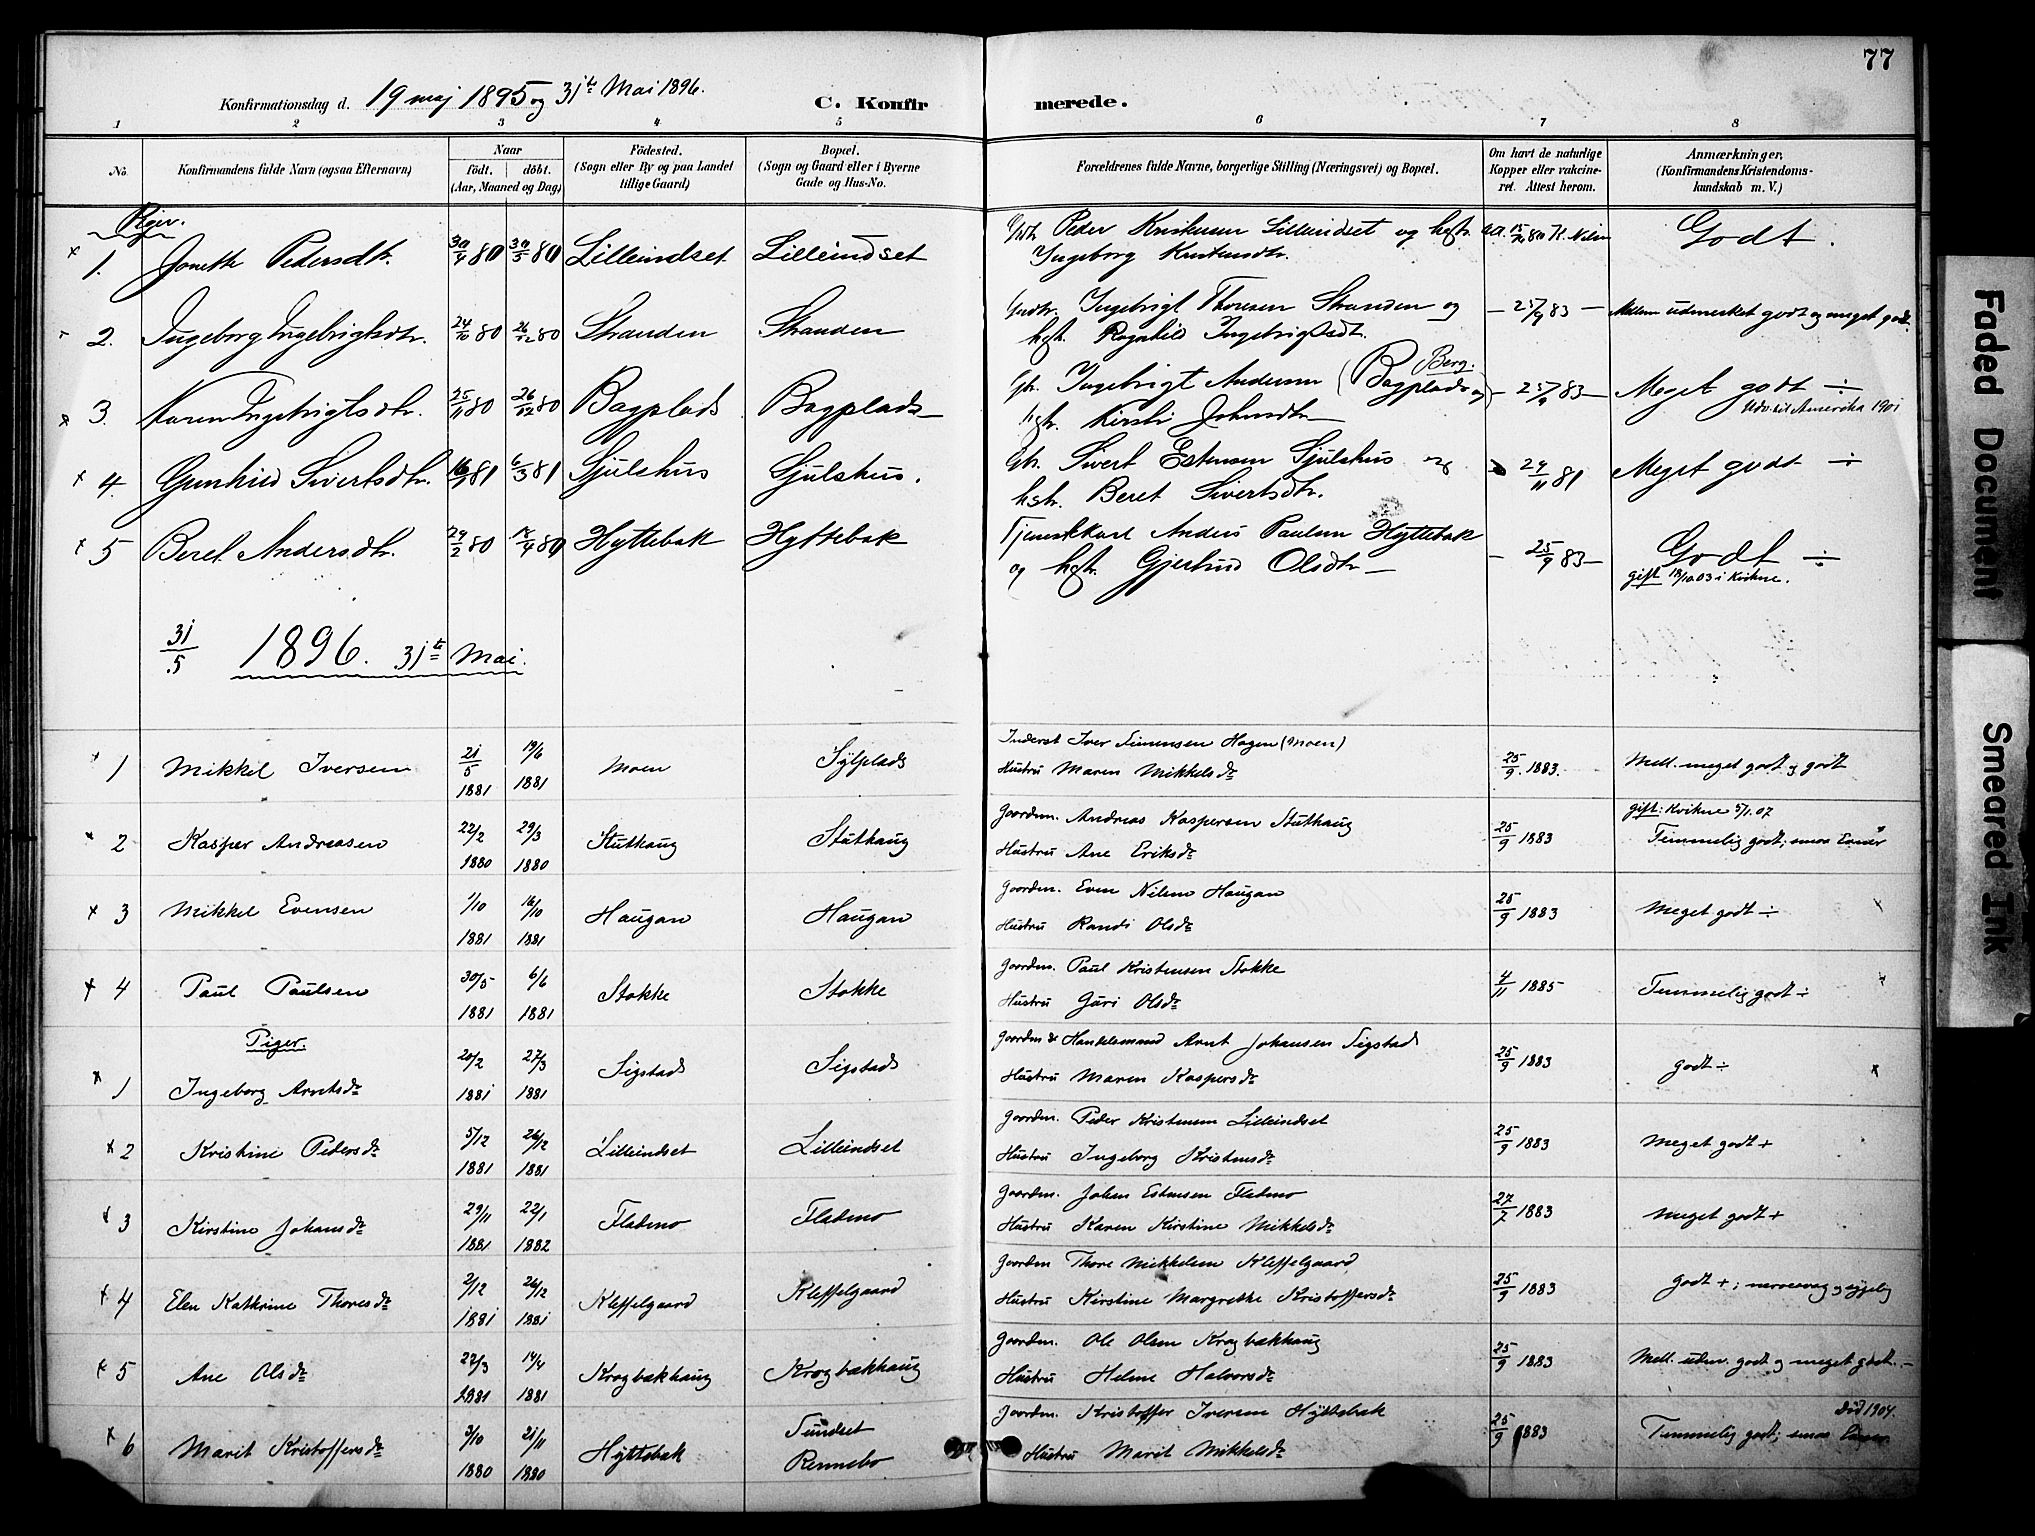 77
Konfirmationsdag d. 19 maj 1895 og 31te Mai 1896. C. Konfirmerede.
1 2 3 4 5 6 7 8
No. Konfirmandens fulde Navn (ogsaa Efternavn) Naar födt. döbt. (Aar, Maaned og Dag) Födested. (Sogn eller By og paa Landet tillige Gaard) Bopæl. (Sogn og Gaard eller i Byerne Gade og Hus-No. Forældrenes fulde Navne, borgerlige Stilling (Næringsvei) og Bopæl. Om havt de naturlige Kopper eller vakcineret. Attest herom. Anmærkninger, (Konfirmandens Kristendomskundskab m. V.)
Piger.
1. Jonette Pedersdtr. 80 80 Lilleindset Lilleindset Peder Kristensen Lilleindset og hstr. Godt.
Ingeborg Kristensdtr.
2. Ingeborg Ingebrigtsdtr. 24/10 80 26/12 80 Stranden Stranden Ingebrigt Thoresen Stranden og – 25/9 83 – Mellem udmerket godt og meget godt.
hstr. Ragnhild Ingebrigtsdt.
3. Karen Ingebrigtsdtr. 25/11 80 26/12 80 Bagplads Bagplads Gbr. Ingebrigt Andersen (Berg. Bagplads og – 25/9 83 – Meget godt ÷
hstr. Kirsti Johnsdtr. – Udv. til Amerika 1901
4. Gunhild Sivertsdtr. 16/1 81 6/3 81 Sjulshus Sjulshus. Gbr. Sivert Estensen Sjulshus og 29/11 81 Meget godt ÷
hstr. Beret Sivertsdtr.
5 Beret Andersdtr. 29/2 80 18/4 80 Hyttebak Hyttebak Tjenestkarl Anders Paulsen Hyttebak – 25/9 83 – Godt ÷
og hstr. Gjertrud Olsdtr – gift 18/10 03 i Kvikne.
31/5 1896. 31te Mai.
1 Mikkel Iversen 21/5 1881 19/6 1881 Moen Sylplads Inderst Iver Simensen Hagen (Moen) 25/9. 1883. Mell. meget godt og godt
Hustru Maren Mikkelsdr
2 Kasper Andreasen 22/2 1880 29/3 1880 Stuthaug Stuthaug Gaardm. Andreas Kaspersen Stuthaug 25/9 1883 gift: Kvikne 5/1. 07
Hustru Ane Eriksdr Temmelig godt; smaa Evner
3 Mikkel Evensen 1/10 1881 16/10 1881 Haugan Haugan Gaardm. Even Nilsen Haugan 25/9 1883 Meget godt ÷
Hustru Randi Olsdr
4 Paul Paulsen 30/5 1881 6/6 1881 Stokke Stokke Gaardm. Paul Kristensen Stokke 4/11 1885 Temmelig godt ÷
Hustru Guri Olsdr
Piger.
1 Ingeborg Arntsdr 20/2 1881 27/3 1881 Sigstad Sigstad Gaardm & Handelsmand Arnt Johansen Sigstad 25/9 1883 godt ÷
Hustru Maren Kaspersdr
2 Kristine Pedersdr 5/12 1881 26/12 1881 Lilleindset Lilleindset Gaardm. Peder Kristensen Lilleindset 25/9 1883 Meget godt +
Hustru Ingeborg Kristensdr
3 Kirstine Johansdr 29/11 1881 22/1 1882 Fladmo Fladmo Gaardm. Johan Estensen Fladmo 27/7 1883 Meget godt +
Hustru Karen Kirstine Mikkelsdr
4 Elen Kathrine Thoresdr 2/12 1881 26/12 1881 Kleffelgaard Kleffelgaard Gaardm Thore Mikkelsen Kleffelgaard 25/9 1883 godt +; nervesvag og sygelig
Hustru Kirstine Margrethe Kristoffersdr
5 Ane Olsdr 22/3 1881 14/4 1881 Krogbækhaug Krogbækhaug Gaardm. Ole Olsen Krogbækhaug 25/9 1883 Mell. udm. godt og meget godt. –
Hustru Helene Halvorsdr
6 Marit Kristoffersdr 3/10 1880 21/11 1880 Hyttebak Sundset Rennebo Gaardm. Kristoffer Iversen Hyttebak 25/9 1883 Død 1904.
Hustru Marit Mikkelsdr Temmelig godt; smaa
Faded Document
Smeared Ink